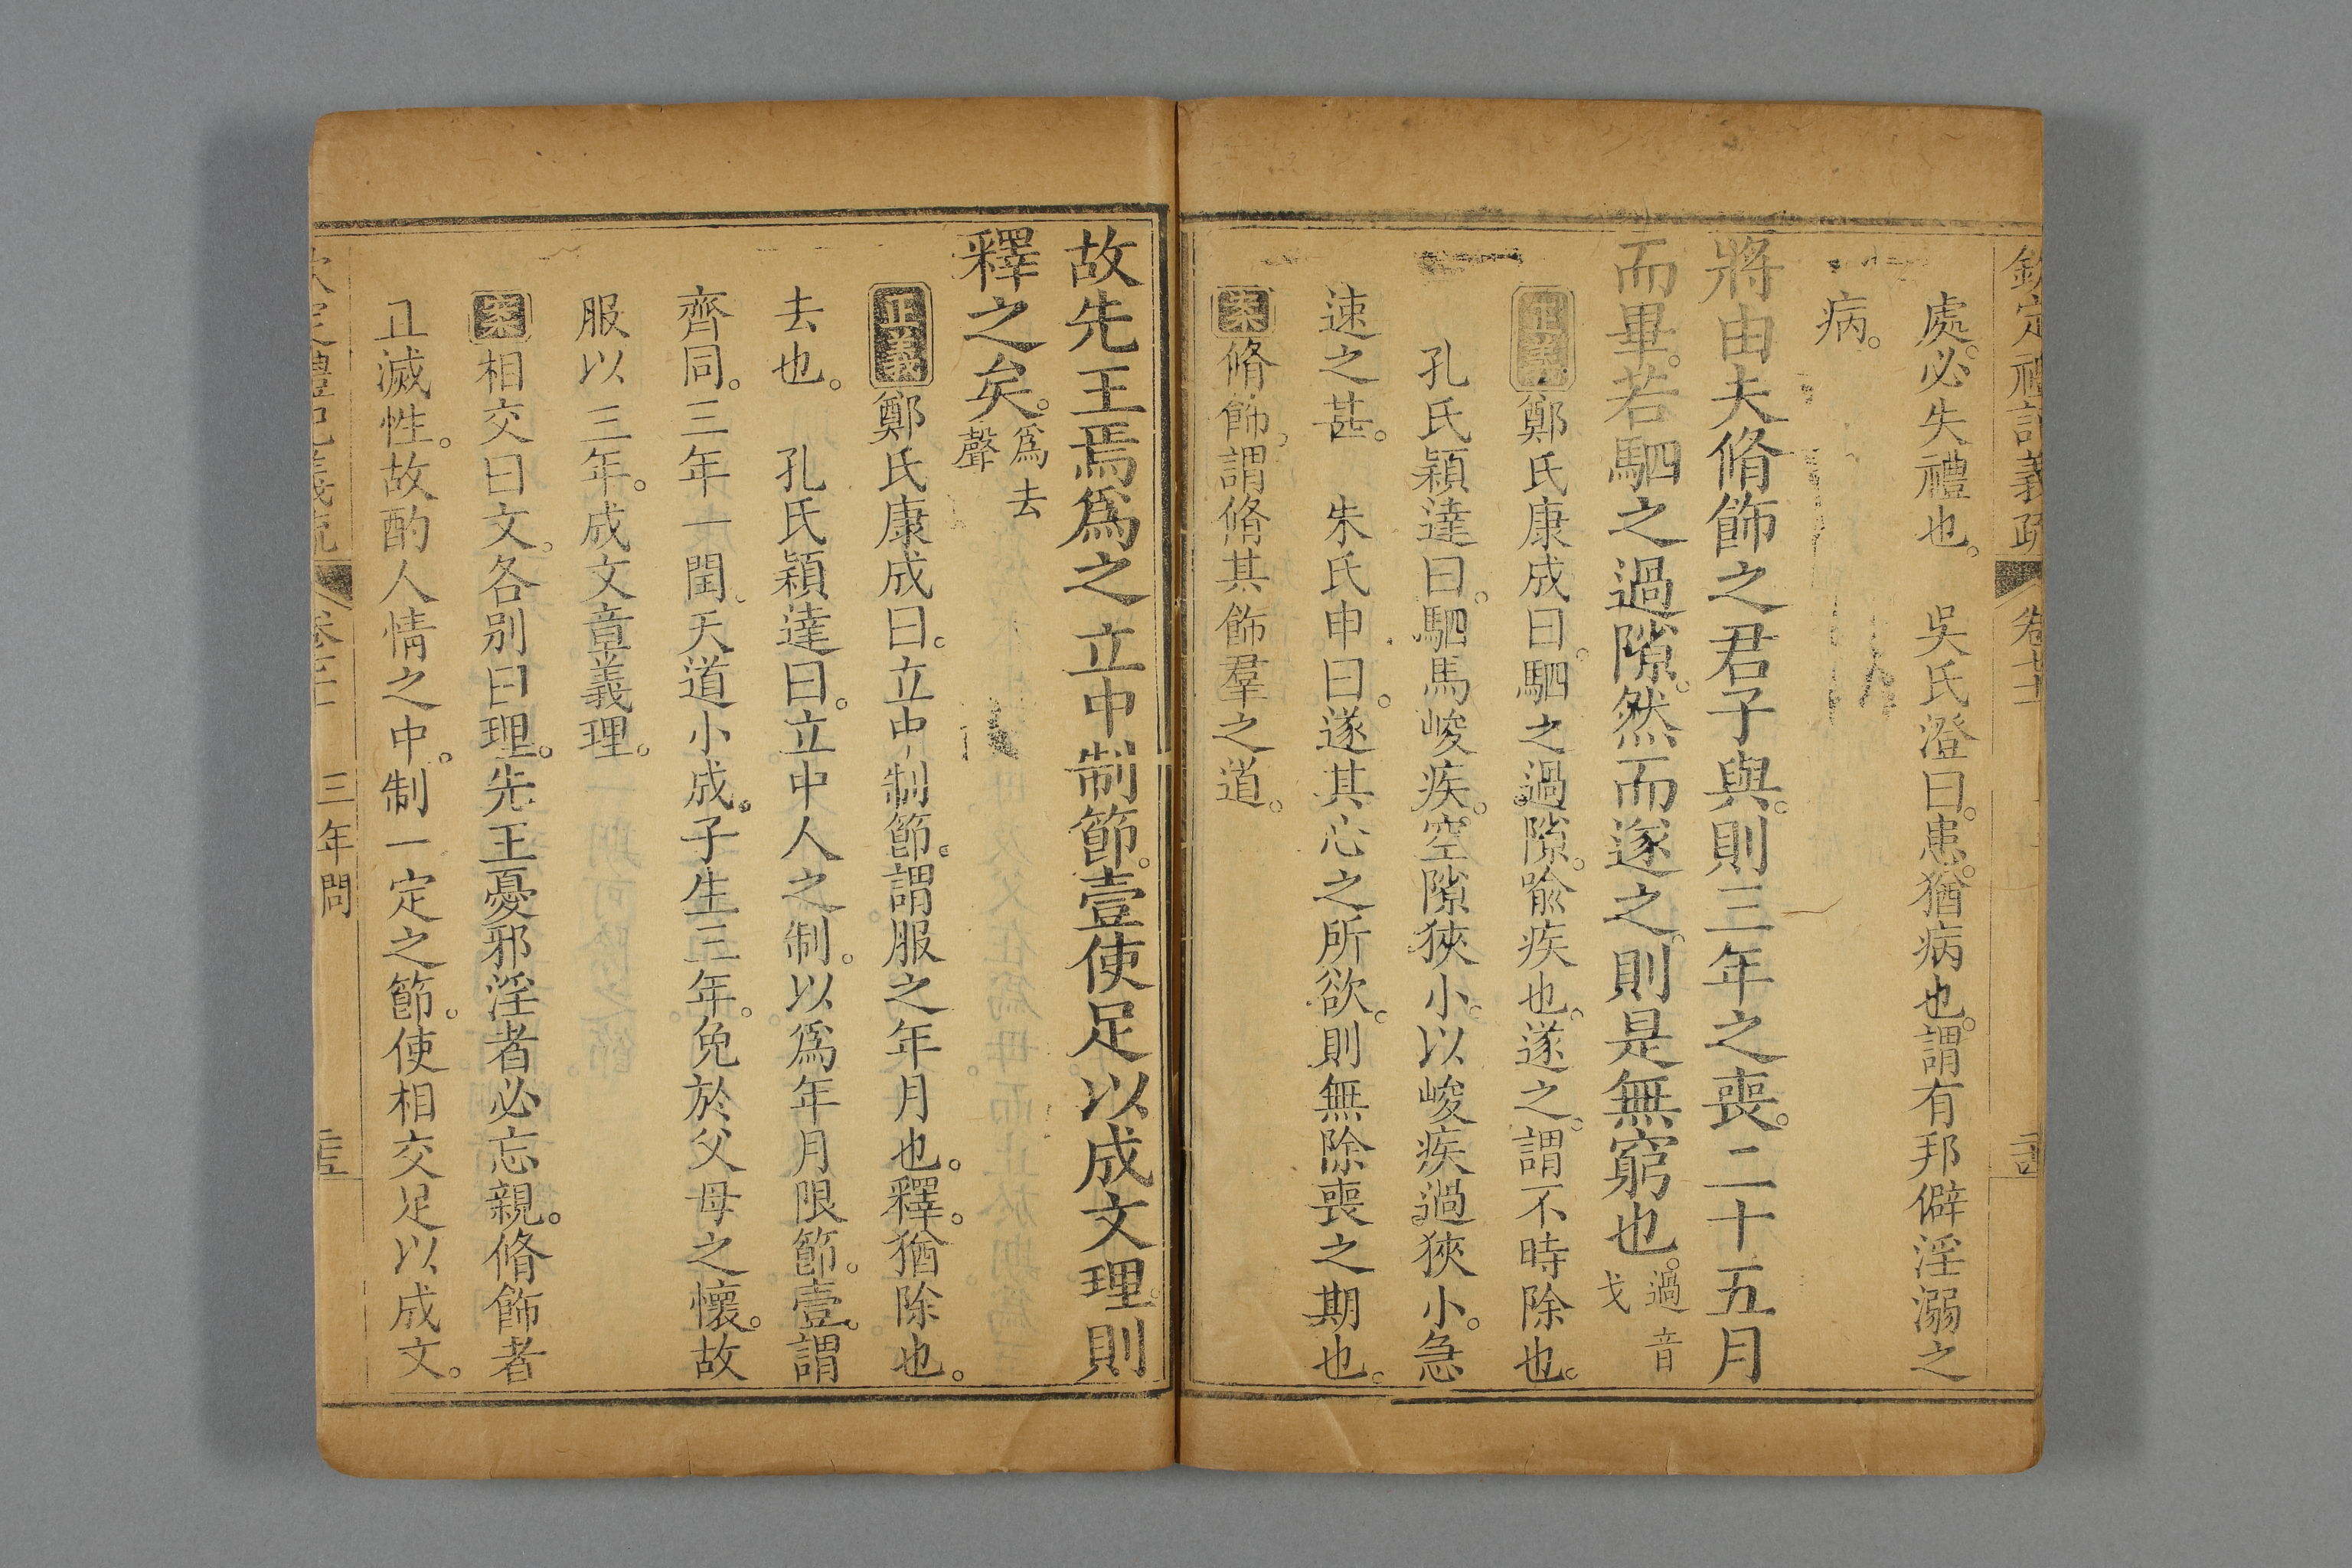 欽定禮記義疏 卷
處。必失禮也。 吳氏澄曰。患。猶病也。謂有邪僻淫溺之
病。
將由夫脩飾之君子與。則三年之喪。二十五月
而畢。若駟之過隙。然而遂之。則是無窮也。過音
戈
正義鄭氏康成曰。駟之過隙。喻疾也。遂之。謂不時除也。
孔氏穎達曰。駟馬峻疾。空隙狹小。以峻疾過狹小。急
速之甚。 朱氏申曰。遂其心之所欲。則無除喪之期也。
案脩飾。謂脩其飾羣之道。
故先王焉爲之立中制節。壹使足以成文理。則
釋之矣。爲去
聲
正義鄭氏康成曰。立中制節。謂服之年月也。釋。猶除也。
去也。 孔氏穎達曰。立中人之制。以爲年月限節。壹。謂
齊同。三年一閏。天道小成。子生三年。免於父母之懷。故
服以三年。成文章義理。
案相交曰文。各別曰理。先王憂邪淫者必忘親。脩飾者
且滅性。故酌人情之中。制一定之節。使相交足以成文。
三年問